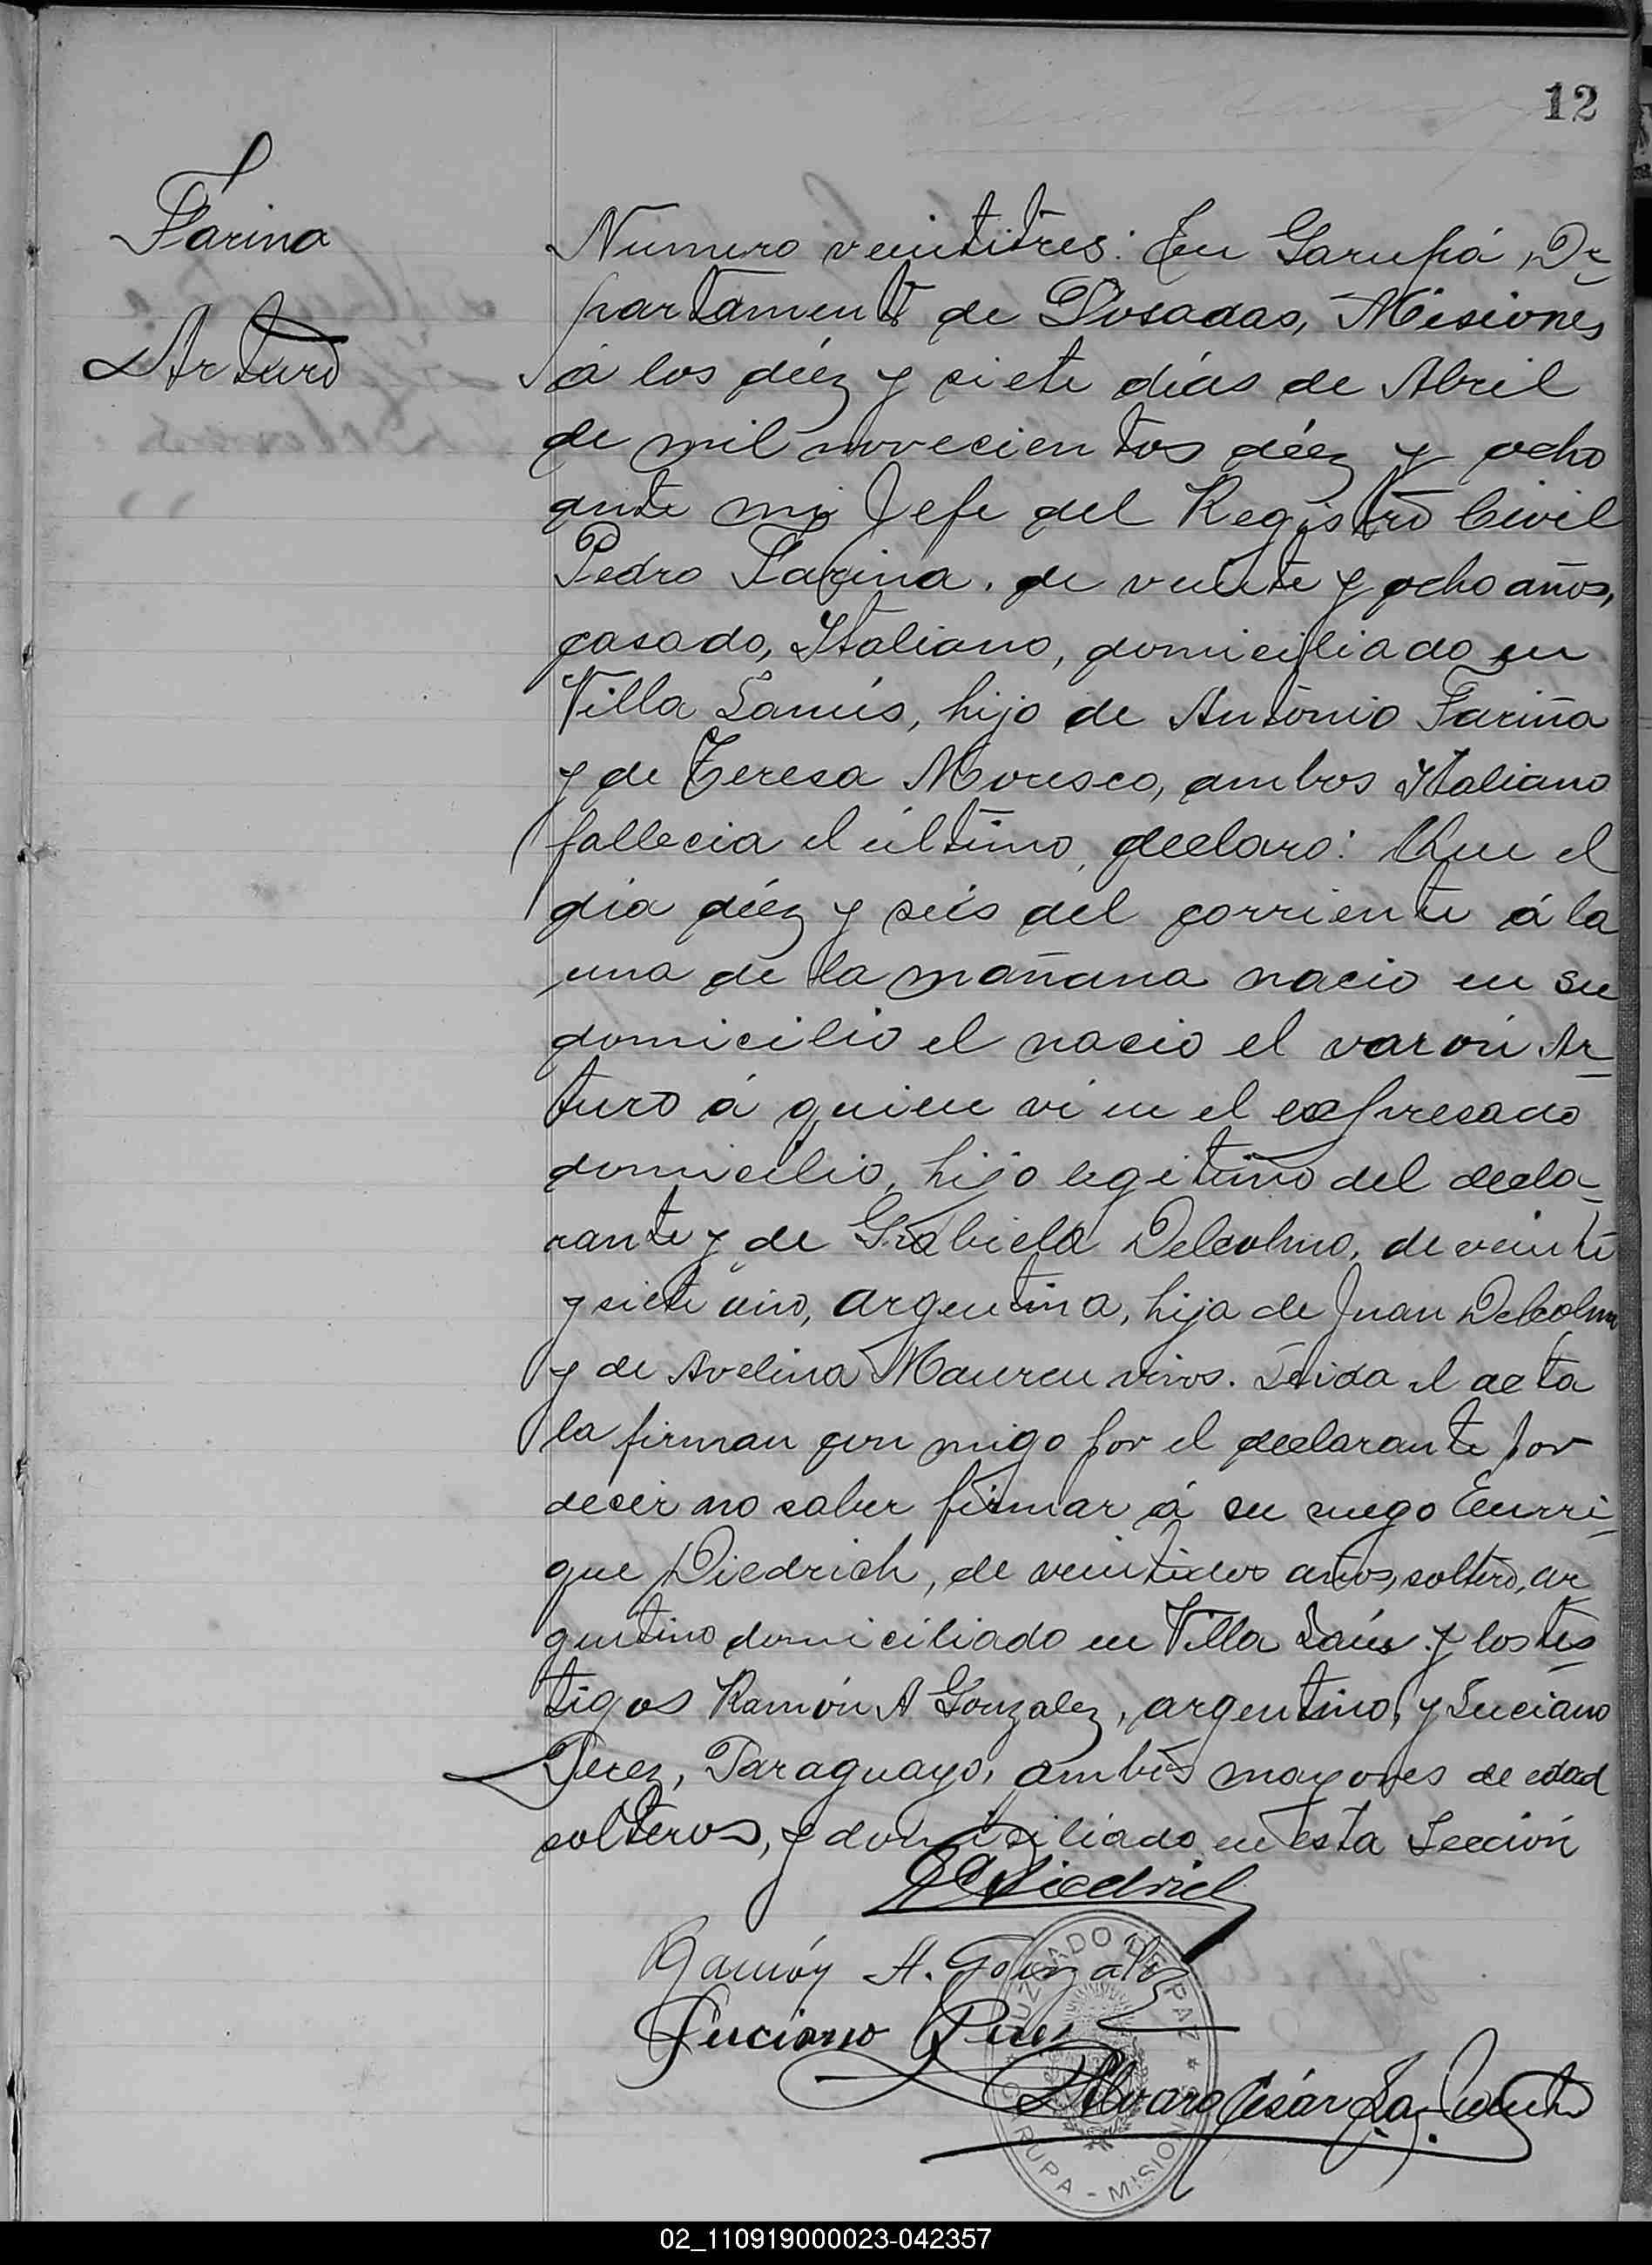 12
Farina
Arturo
Numero veintitres: En Garupá, De
partamento de Posadas, Misiones
á los diéz y siete días de Abril
de mil novecientos diéz y ocho
ante mi Jefe del Registro Civil
Pedro Farina, de veinte y ocho años,
casado, Italiano, domiciliado en
Villa Lanús, hijo de Antonio Fariña
y de Teresa Moresco, ambos Italiano
fallecia el último, declaro: Que el
día diéz y seis del corriente á la
una de la mañana nacio en su
domicilio el nacio el varón Ar
turo á quien vi en el expresado
domicilio, hijo legitimo del decla-
rante y de Grabiela Delcolmo, de veinte
y siete año, argentina, hija de Juan Delcolmo
y de Avelina Mauren vivos. Leida el acta
la firman con migo por el declarante por
decir no saber firmar á su ruego Enrri-
que Diedrich, de veintidos años, soltero, ar
gentino domiciliado en Villa Lanús y los tes
tigos Ramón A Gonzalez, argentino, y Luciano
Perez, Paraguayo, ambos mayores de edad
solteros, y domiciliado en esta Sección
Diedrich
Ramón A. Gonzalez
Luciano Perez
Alvaro César
JUZGADO DE PAZ
GARUPA - MISIONES
02_110919000023-042357